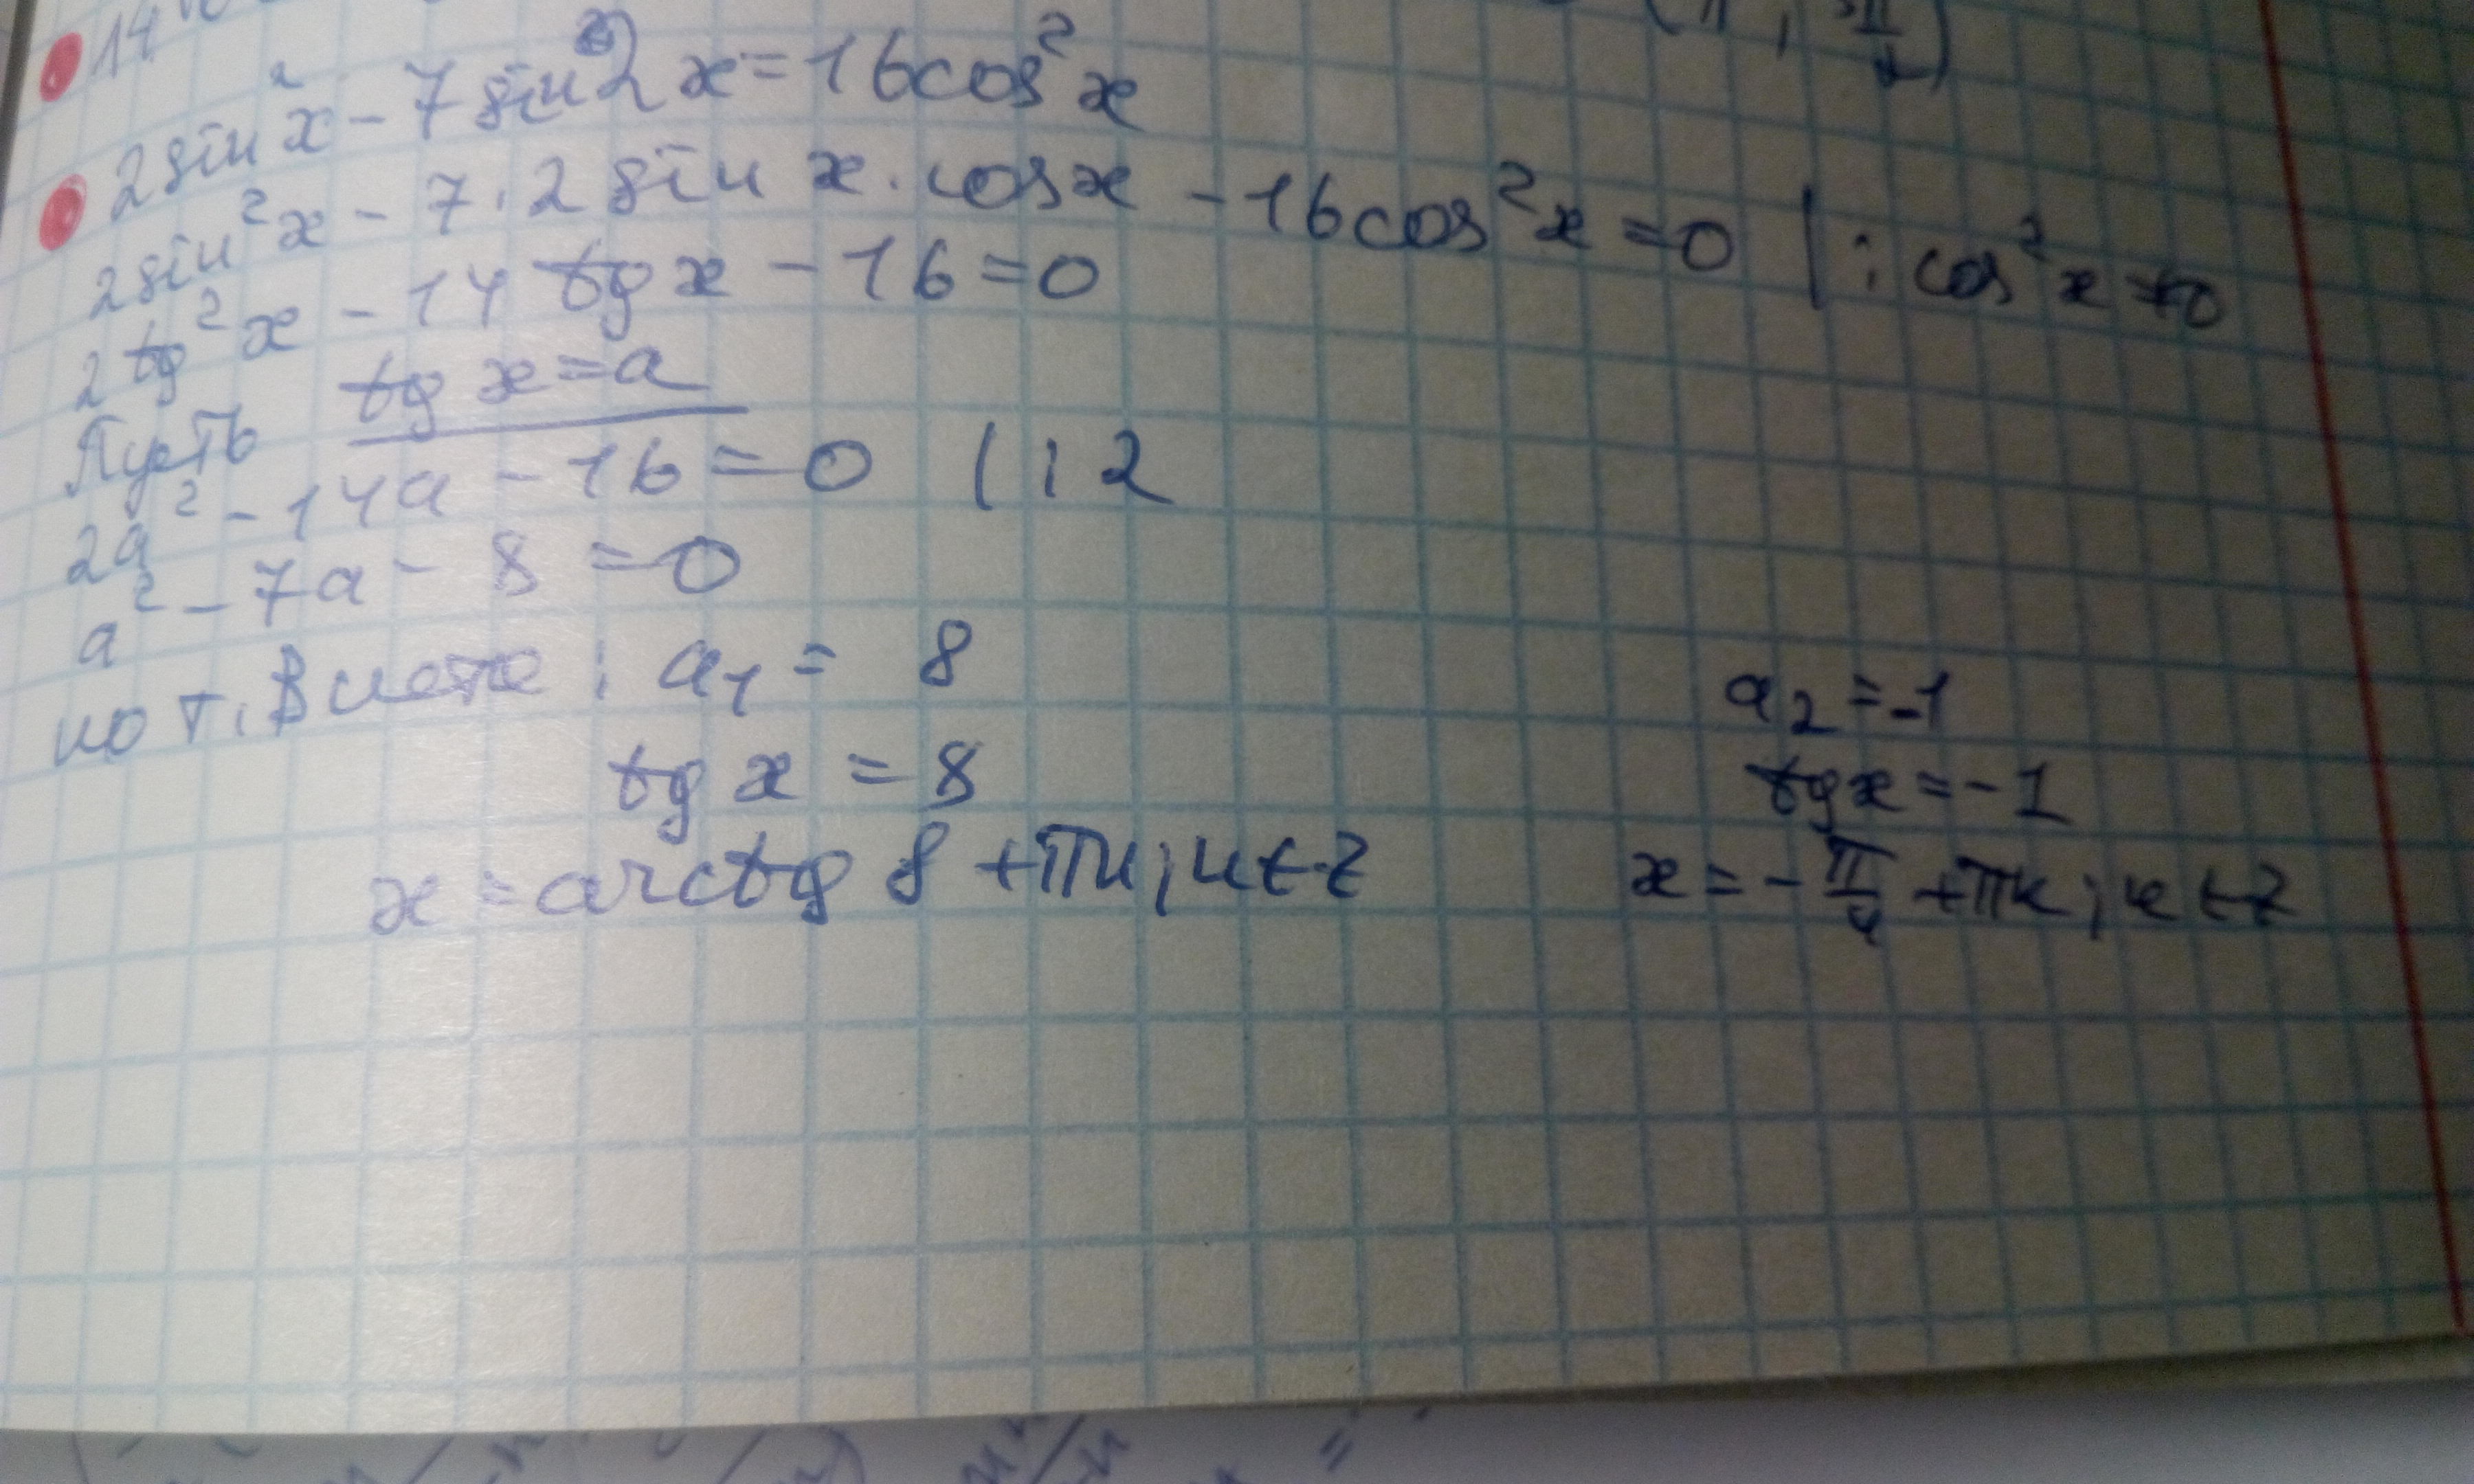 14
(π; 3π/2)
2sin²x - 7sin2x = 16cos²x
2sin²x - 7·2sin x·cosx - 16cos²x = 0 | : cos²x ≠ 0
2tg²x - 14tgx - 16 = 0
Пусть tg x = a
2a² - 14a - 16 = 0 | : 2
a² - 7a - 8 = 0
по т. Виета: a₁ = 8 a₂ = -1
tg x = 8 tgx = -1
x = arctg 8 + πn; n ∈ Z x = -π/4 + πk; k ∈ Z